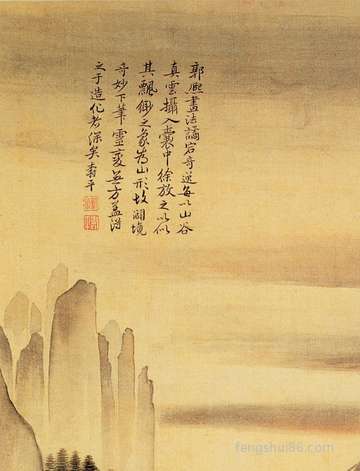 郭熙畫法譎宕奇逆每以山谷
真雲攝入囊中徐放之以似
其飄緲之象為山形故闢境
奇妙下筆靈變無方蓋得
之于造化者深矣壽平
fengshui86.com